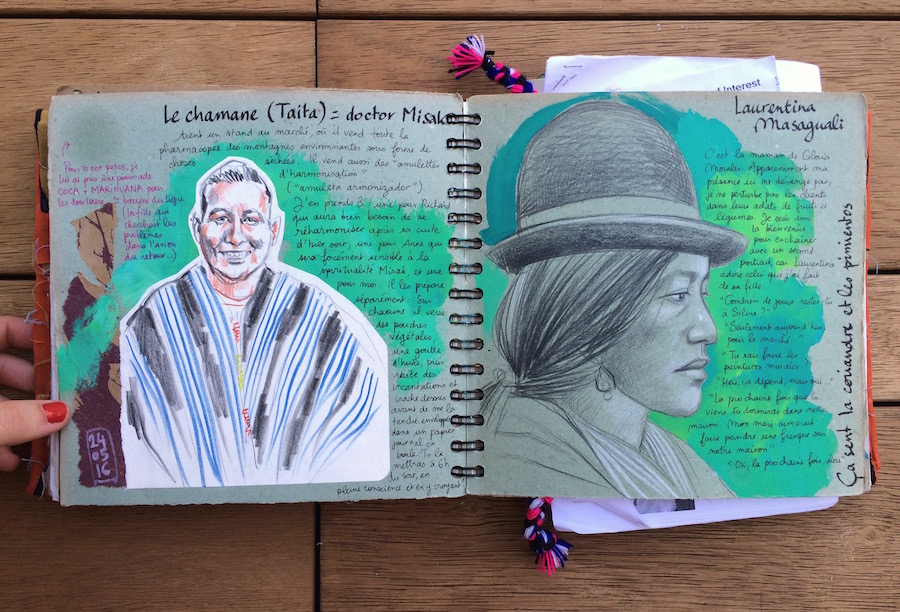 Le chamane (Taita) = doctor Misak
tient un stand au marché, où il vend toute la
pharmacopée des montagnes environnantes sous forme de
choses séchées. Il vend aussi des "amulettes
d'harmonisation"
("amuleto armonizador").
J'en prends 3: une pour Richard
qui aura bien besoin de se
réharmoniser après sa cuite
d'hier soir, une pour Anns qui
sera forcément sensible à la
spiritualité Misak, et une
pour moi. Il les prépare
séparément. Sur
chacune il verse
des poudres
végétales
une goutte
d'huile, puis
récite des
incantations et
crache dessus
avant de me la
tendre enveloppée
dans un papier
journal en
boule. "Tu la
mettras à 6h
du soir, en
pleine conscience et en y croyant"
Pour 10 000 pesos, je
lui ai pris une pommade
COCA + MARIHUANA pour
les douleurs + baume du tigre
(la fille qui
cherchait les
problèmes
dans l'avion
du retour...)
24
05
16
Interest
Laurentina
Masaguali
C'est la maman de Gloria
Morales. Apparemment ma
présence ici ne dérange pas,
je ne perturbe pas les clients
dans leurs achats de fruits et
légumes. Je suis donc
la bienvenue
pour enchaîner
avec un second
portrait, car Laurentina
adore celui que j'ai fait
de sa fille.
"Combien de jours restes-tu
à Silvia?"
"Seulement aujourd'hui,
pour le marché."
"Tu sais faire les
peintures murales?"
"Heu, ça dépend, mais oui."
"La prochaine fois que tu
viens, tu dormiras dans notre
maison. Mon mari aimerait
faire peindre une fresque sur
notre maison"
"Ok, la prochaine fois,
Ça sent la coriandre et les pimientos